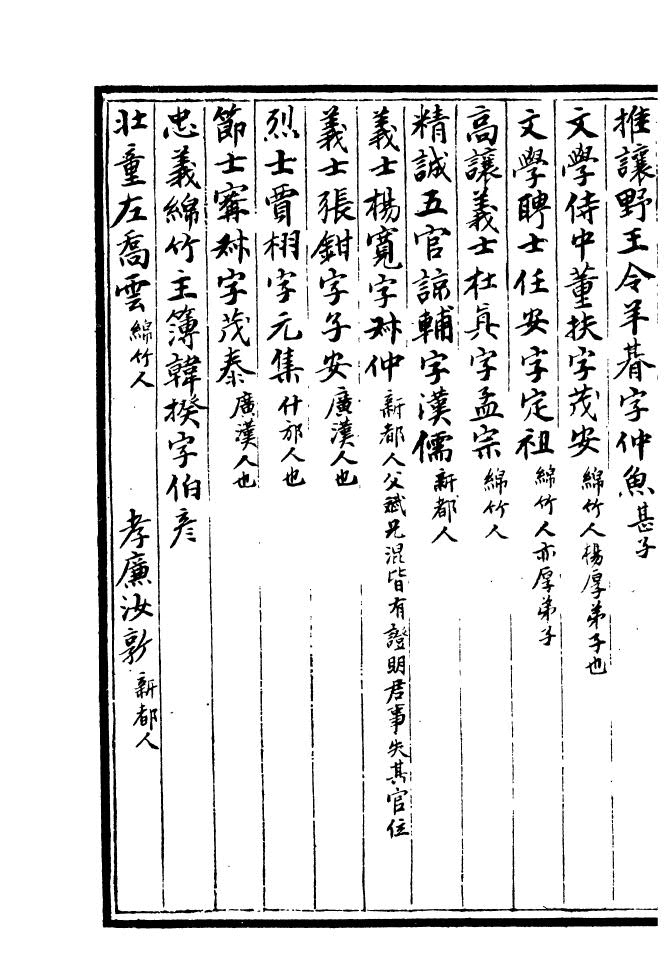 推讓野王令羊朞字仲魚甚子
文學侍中董扶字茂安綿竹人楊厚弟子也
文學聘士任安字定祖綿竹人亦厚弟子
高讓義士杜眞字孟宗綿竹人
精誠五官諒輔字漢儒新都人
義士楊寬字叔仲新都人父斌兄混皆有證明君事失其官位
義士張鉗字子安廣漢人也
烈士賈栩字元集什邡人也
節士甯叔字茂泰廣漢人也
忠義綿竹主簿韓揆字伯彥
壯童左喬雲綿竹人　孝廉汝敦新都人